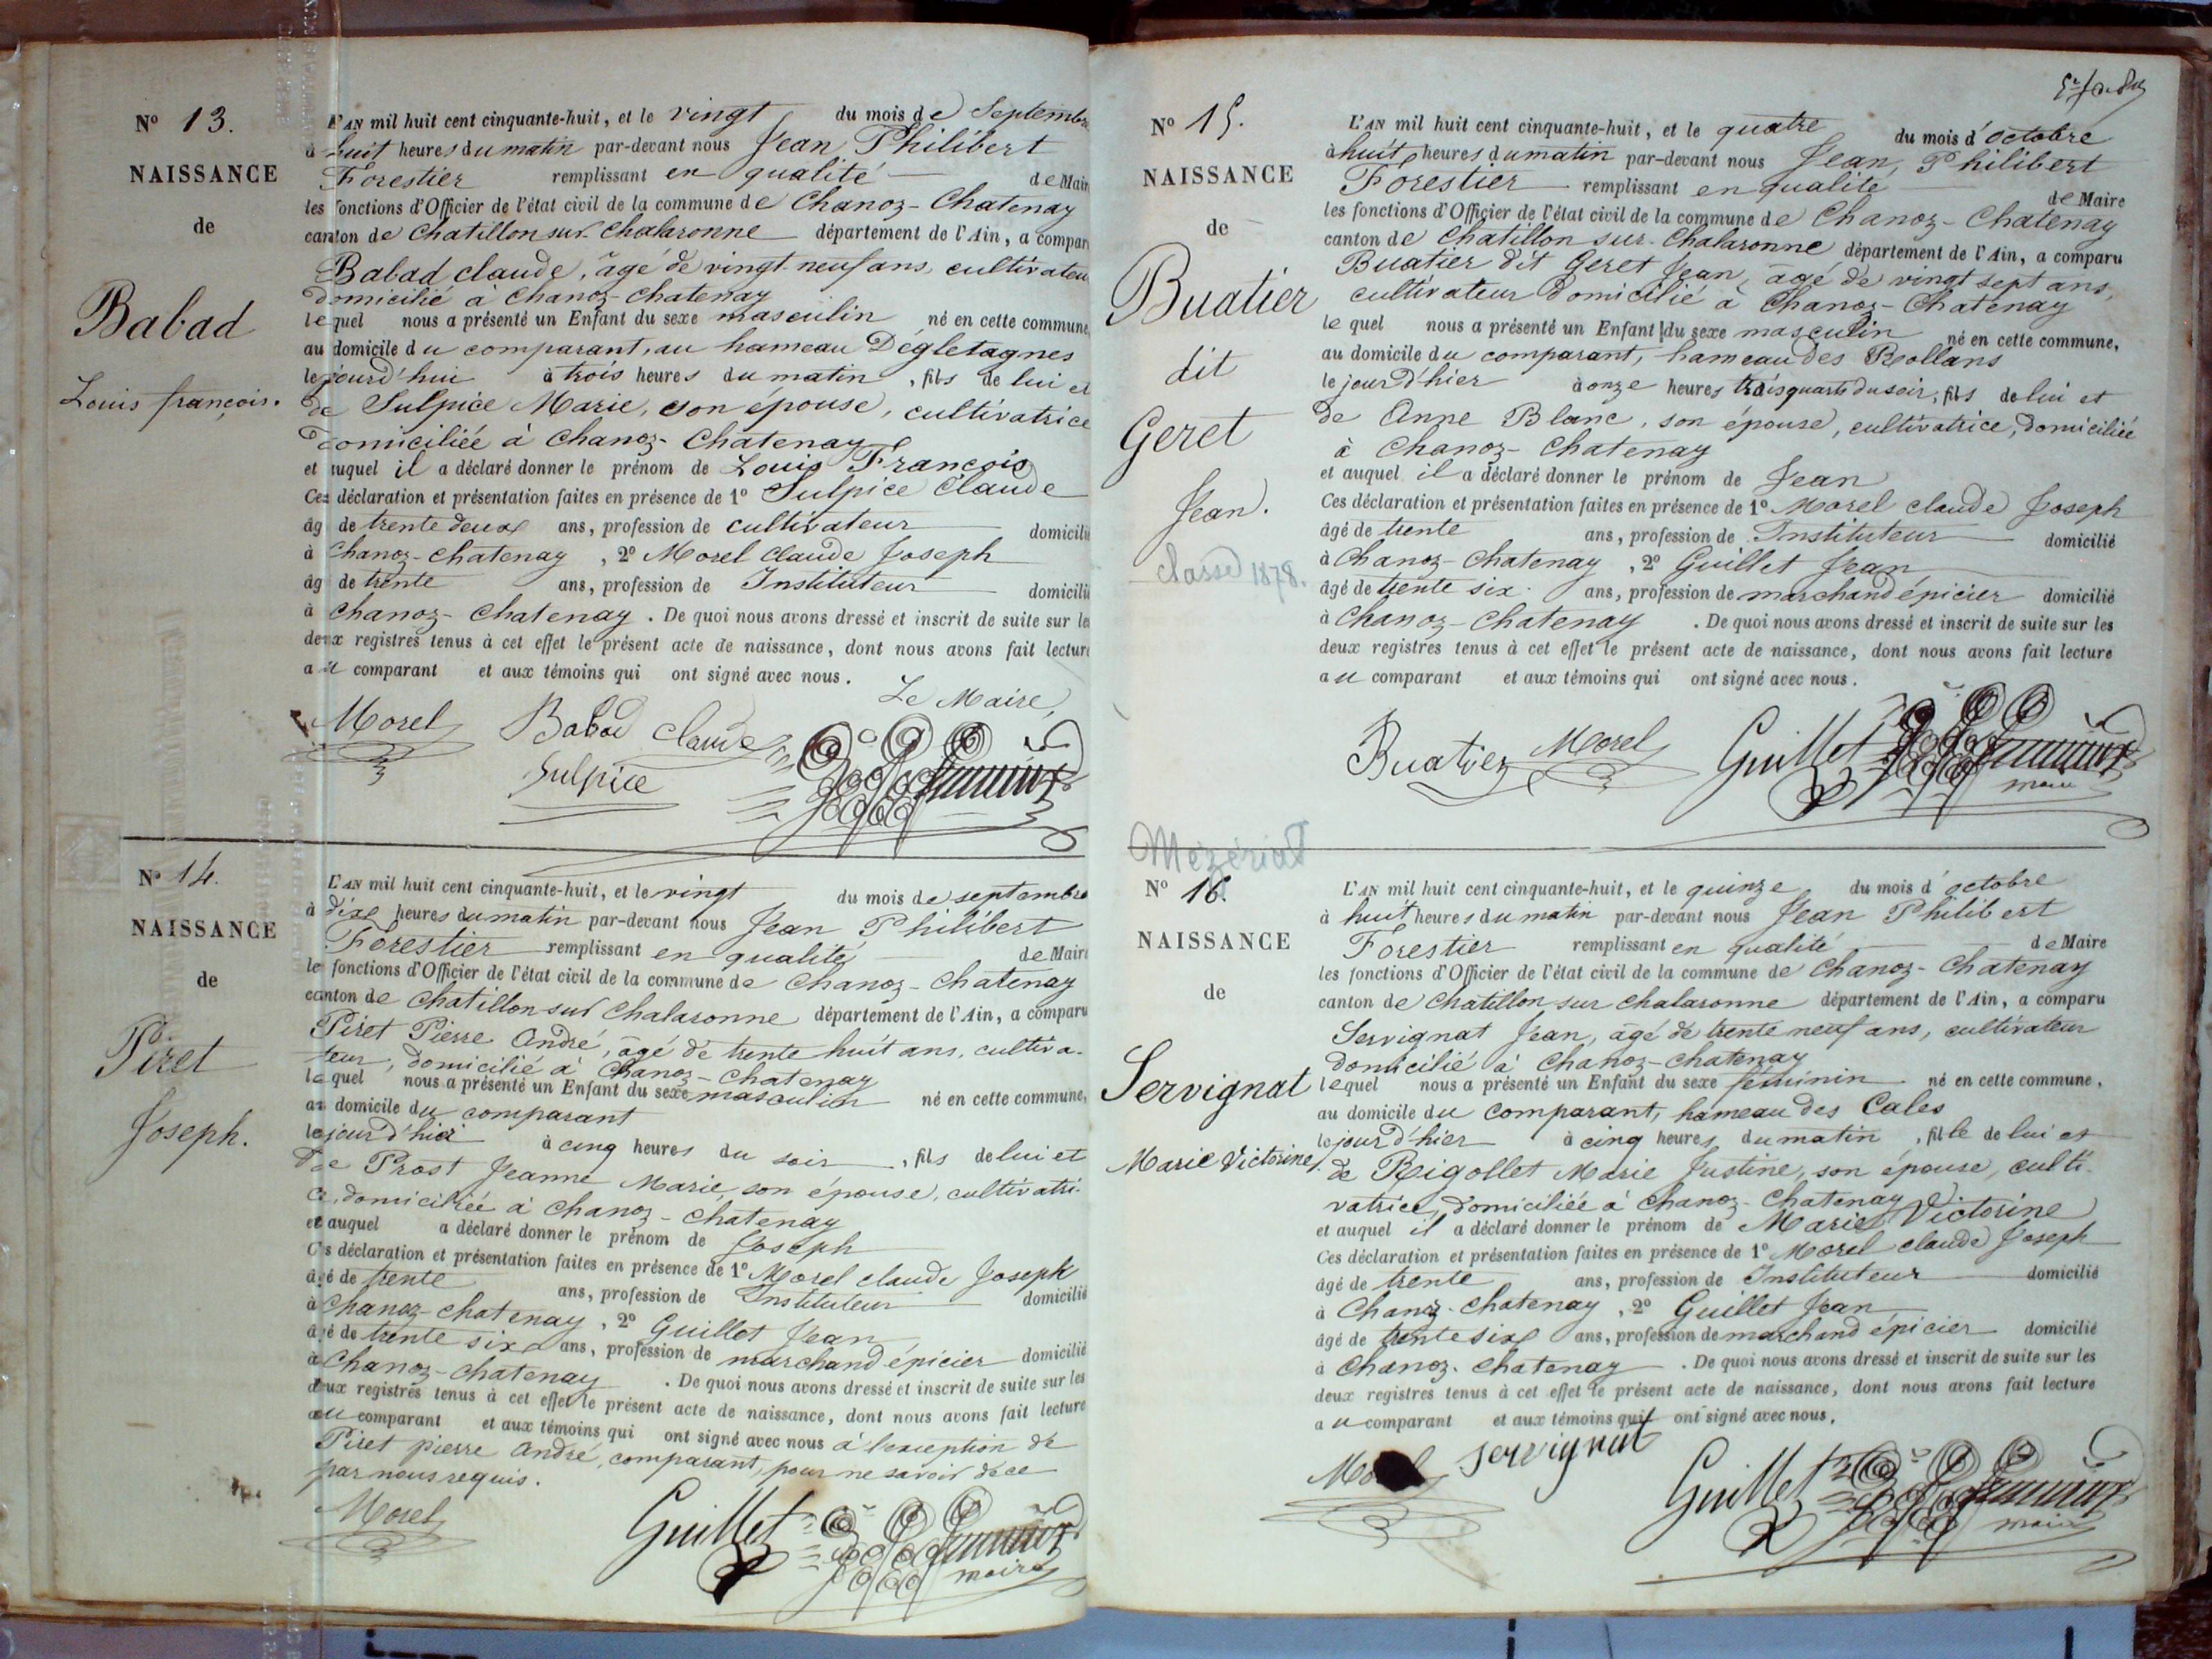 N° 13.
NAISSANCE
de
Babad
Louis françois.
L'AN mil huit cent cinquante-huit, et le vingt du mois de Septembre
à huit heures du matin par-devant nous Jean Philibert
Forestier remplissant en qualité de Maire
les fonctions d'Officier de l'état civil de la commune de Chanoz-Chatenay
canton de Chatillon sur Chalaronne département de l'Ain, a comparu
Babad claude, âgé de vingt-neuf ans, cultivateur
domicilié à Chanoz-Chatenay
lequel nous a présenté un Enfant du sexe masculin né en cette commune,
au domicile du comparant, au hameau Dégletagnes
le jourd'hui à trois heures du matin, fils de lui et
de Sulpice Marie, son épouse, cultivatrice
domiciliée à Chanoz-Chatenay
et auquel il a déclaré donner le prénom de Louis François
Ces déclaration et présentation faites en présence de 1° Sulpice Claude
âgé de trente deux ans, profession de cultivateur domicilié
à Chanoz-Chatenay, 2° Morel Claude Joseph
âgé de trente ans, profession de Instituteur domicilié
à Chanoz-Chatenay. De quoi nous avons dressé et inscrit de suite sur les
deux registres tenus à cet effet le présent acte de naissance, dont nous avons fait lecture
au comparant et aux témoins qui ont signé avec nous.
Le Maire,
Morel Babad Claude
Sulpice
N° 14.
NAISSANCE
de
Piret
Joseph.
L'AN mil huit cent cinquante-huit, et le vingt du mois de septembre
à dixe heures du matin par-devant nous Jean Philibert
Forestier remplissant en qualité de Maire
les fonctions d'Officier de l'état civil de la commune de Chanoz-Chatenay
canton de Chatillon sur Chalaronne département de l'Ain, a comparu
Piret Pierre André, âgé de trente huit ans, cultiva-
teur, domicilié à Chanoz-Chatenay
lequel nous a présenté un Enfant du sexe masculin né en cette commune,
au domicile du comparant
le jour d'hier à cinq heures du soir, fils de lui et
de Prost Jeanne Marie, son épouse, cultivatri-
ce, domiciliée à Chanoz-Chatenay
et auquel a déclaré donner le prénom de Joseph
Ces déclaration et présentation faites en présence de 1° Morel claude Joseph
âgé de trente ans, profession de Instituteur domicilié
à Chanoz-Chatenay, 2° Guillet Jean
âgé de trente six ans, profession de marchand épicier domicilié
à Chanoz-Chatenay. De quoi nous avons dressé et inscrit de suite sur les
deux registres tenus à cet effet le présent acte de naissance, dont nous avons fait lecture
au comparant et aux témoins qui ont signé avec nous à l'exception de
Piret pierre André, comparant, pour ne savoir de ce
par nous requis.
Morel Guillet
maire
N° 15.
NAISSANCE
de
Buatier
dit
Geret
Jean.
classe 1878.
L'AN mil huit cent cinquante-huit, et le quatre du mois d'octobre
à huit heures du matin par-devant nous Jean, Philibert
Forestier remplissant en qualité de Maire
les fonctions d'Officier de l'état civil de la commune de Chanoz-Chatenay
canton de Chatillon sur Chalaronne département de l'Ain, a comparu
Buatier dit Geret Jean, âgé de vingt sept ans,
cultivateur domicilié à Chanoz-Chatenay
lequel nous a présenté un Enfant du sexe masculin né en cette commune,
au domicile du comparant, hameau des Rollans
le jour d'hier à onze heures trois quarts du soir, fils de lui et
de Anne Blanc, son épouse, cultivatrice, domiciliée
à Chanoz-Chatenay
et auquel il a déclaré donner le prénom de Jean
Ces déclaration et présentation faites en présence de 1° Morel claude Joseph
âgé de trente ans, profession de Instituteur domicilié
à Chanoz-Chatenay, 2° Guillet Jean
âgé de trente six. ans, profession de marchand épicier domicilié
à Chanoz-Chatenay. De quoi nous avons dressé et inscrit de suite sur les
deux registres tenus à cet effet le présent acte de naissance, dont nous avons fait lecture
au comparant et aux témoins qui ont signé avec nous.
Buatier Morel Guillet
maire
Mézériat
N° 16.
NAISSANCE
de
Servignat
Marie Victorine.
L'AN mil huit cent cinquante-huit, et le quinze du mois d'octobre
à huit heures du matin par-devant nous Jean Philibert
Forestier remplissant en qualité de Maire
les fonctions d'Officier de l'état civil de la commune de Chanoz-Chatenay
canton de Chatillon sur Chalaronne département de l'Ain, a comparu
Servignat Jean, âgé de trente neuf ans, cultivateur
domicilié à Chanoz-Chatenay
lequel nous a présenté un Enfant du sexe féminin né en cette commune,
au domicile du comparant, hameau des Cales
le jour d'hier à cinq heures du matin, fille de lui et
de Rigollet Marie Justine, son épouse, culti-
vatrice, domiciliée à Chanoz-Chatenay
et auquel il a déclaré donner le prénom de Marie Victorine
Ces déclaration et présentation faites en présence de 1° Morel claude Joseph
âgé de trente ans, profession de Instituteur domicilié
à Chanoz-Chatenay, 2° Guillet Jean
âgé de trente sixe ans, profession de marchand épicier domicilié
à Chanoz-Chatenay. De quoi nous avons dressé et inscrit de suite sur les
deux registres tenus à cet effet le présent acte de naissance, dont nous avons fait lecture
au comparant et aux témoins qui ont signé avec nous.
Morel servignat Guillet
maire